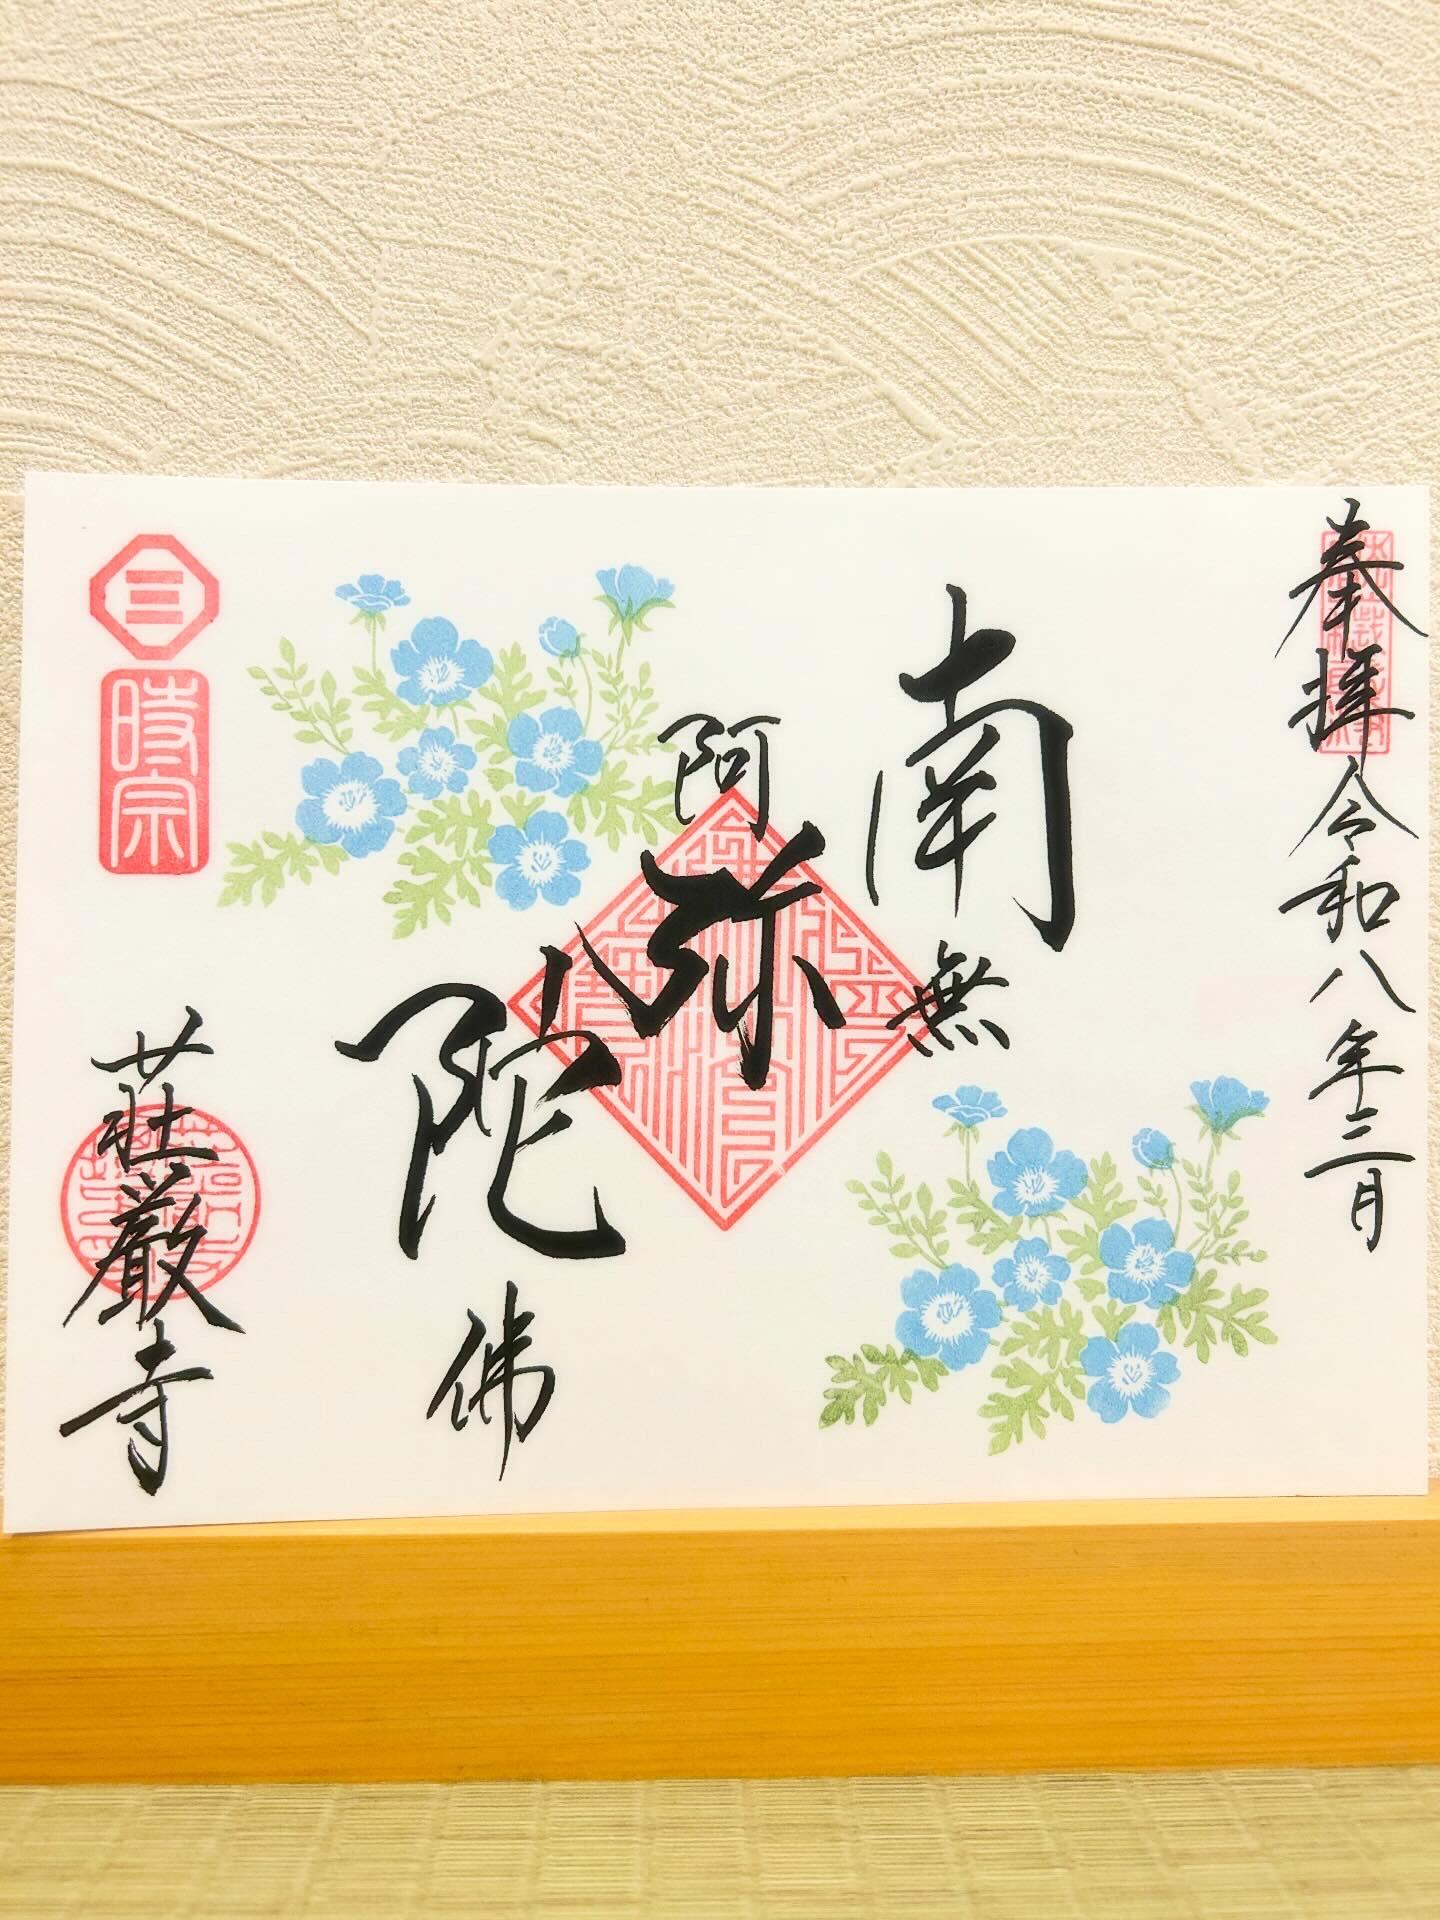 奉拝 令和八年三月
南無
阿弥陀佛
時宗
荘厳寺